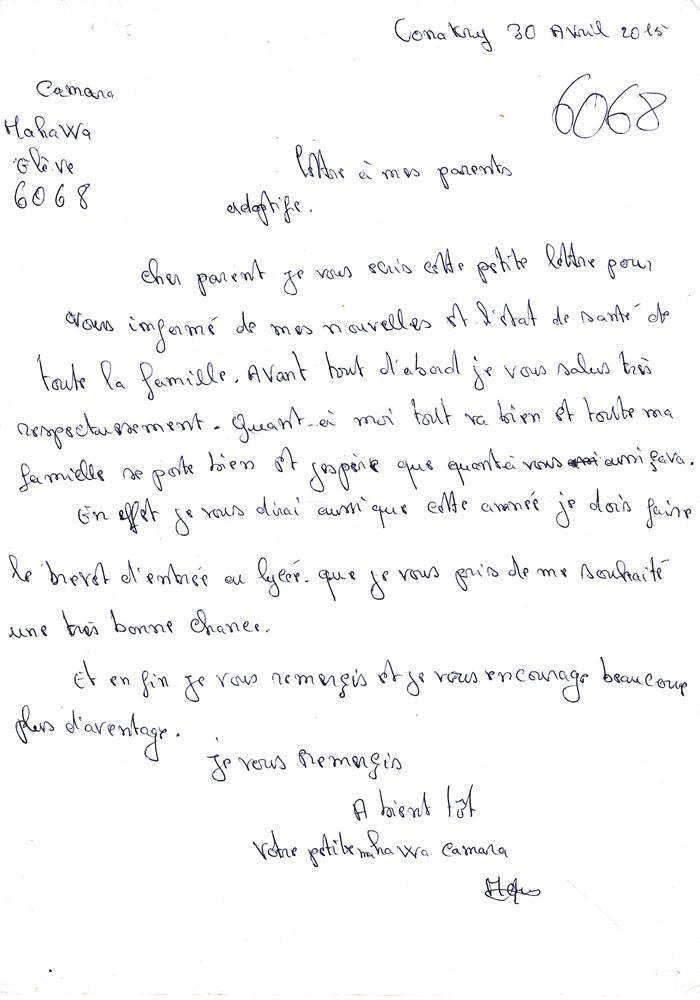 Conakry 30 Avril 2015
Camara
6068
MahaWa
Elève
6068
lettre à mes parents
adoptife.
cher parent je vous ecris cette petite lettre pour
vous informé de mes nouvelles et l'état de santé de
toute la famille. Avant tout d'abord je vous salus très
respectueusement. Quant-à moi tout va bien et toute ma
famielle se porte bien et j'espère que quantà vous aussi çava.
En effet je vous dirai aussi que cette année je dois faire
le brevet d'entrée au lyceé. que je vous pris de me souhaité
une très bonne chance.
Et en fin je vous remerçis et je vous encourage beaucoup
plus d'aventage.
je vous Remerçis
A bient tôt
Votre petite mahawa camara